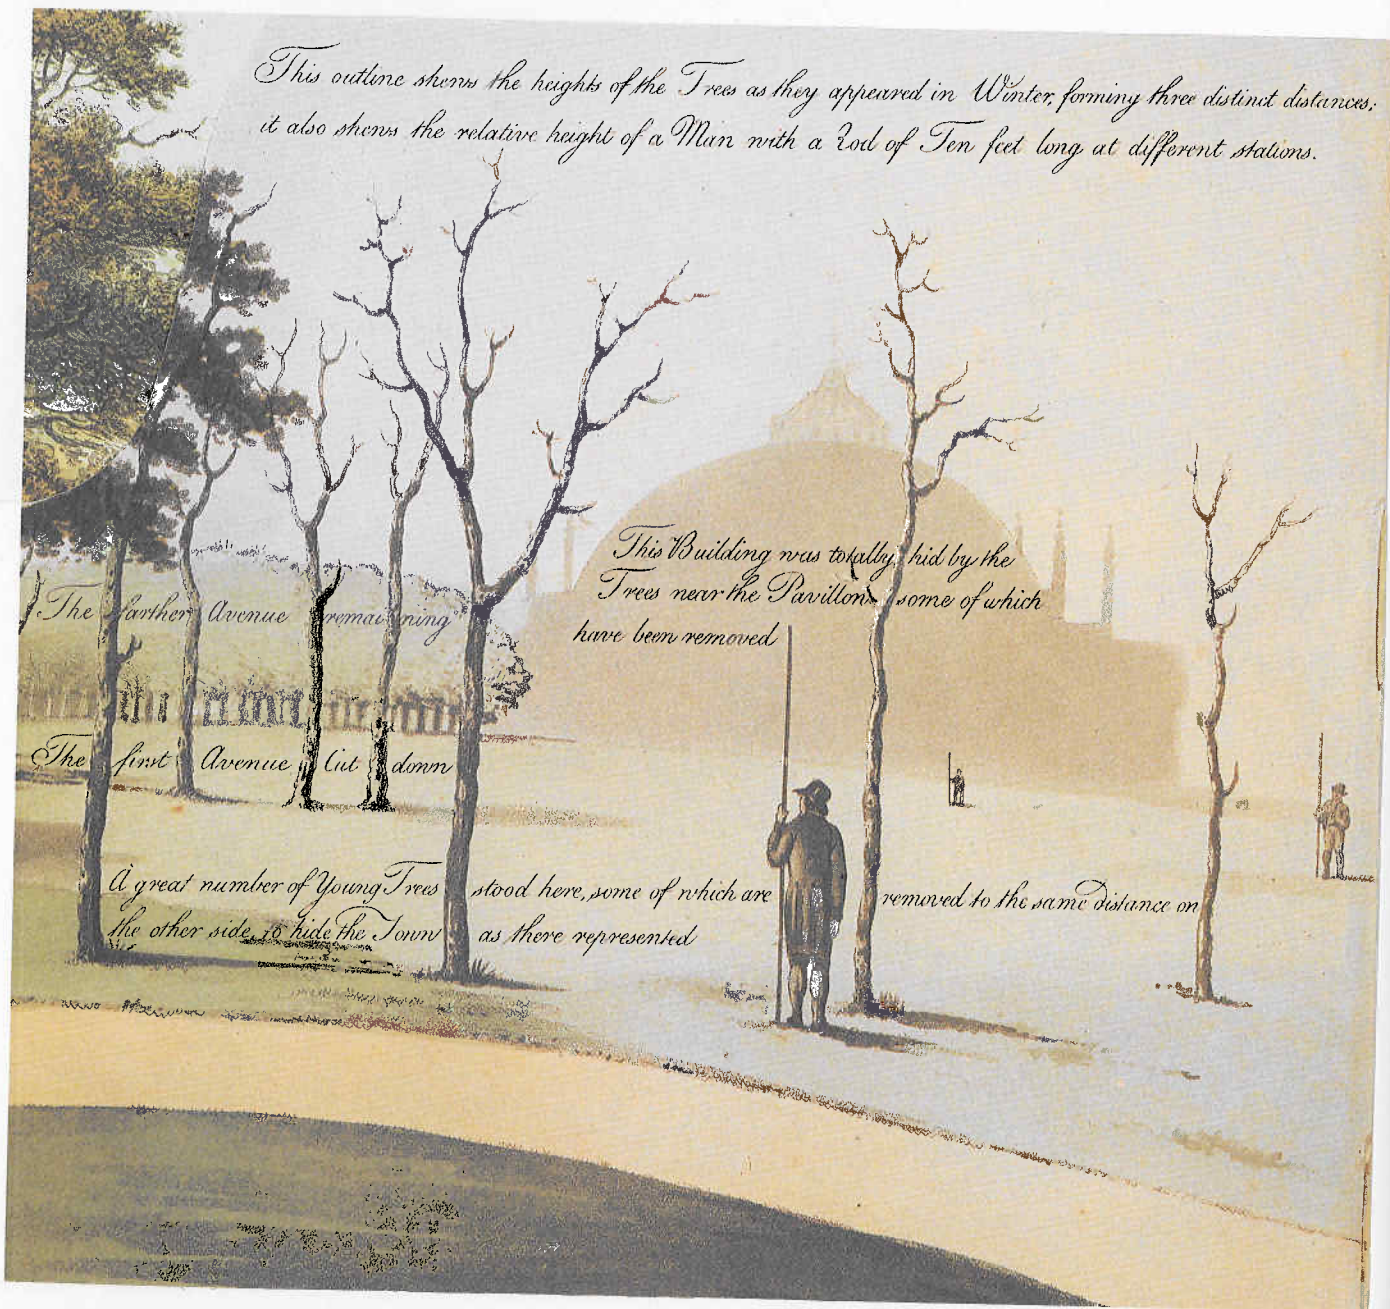 This outline shews the heights of the Trees as they appeared in Winter, forming three distinct distances;
it also shews the relative height of a Man with a Rod of Ten feet long at different stations.
This Building was totally hid by the
Trees near the Pavillon some of which
have been removed
The farther Avenue remaining
The first Avenue Cut down
A great number of Young Trees stood here, some of which are removed to the same distance on
the other side, to hide the Town as there represented